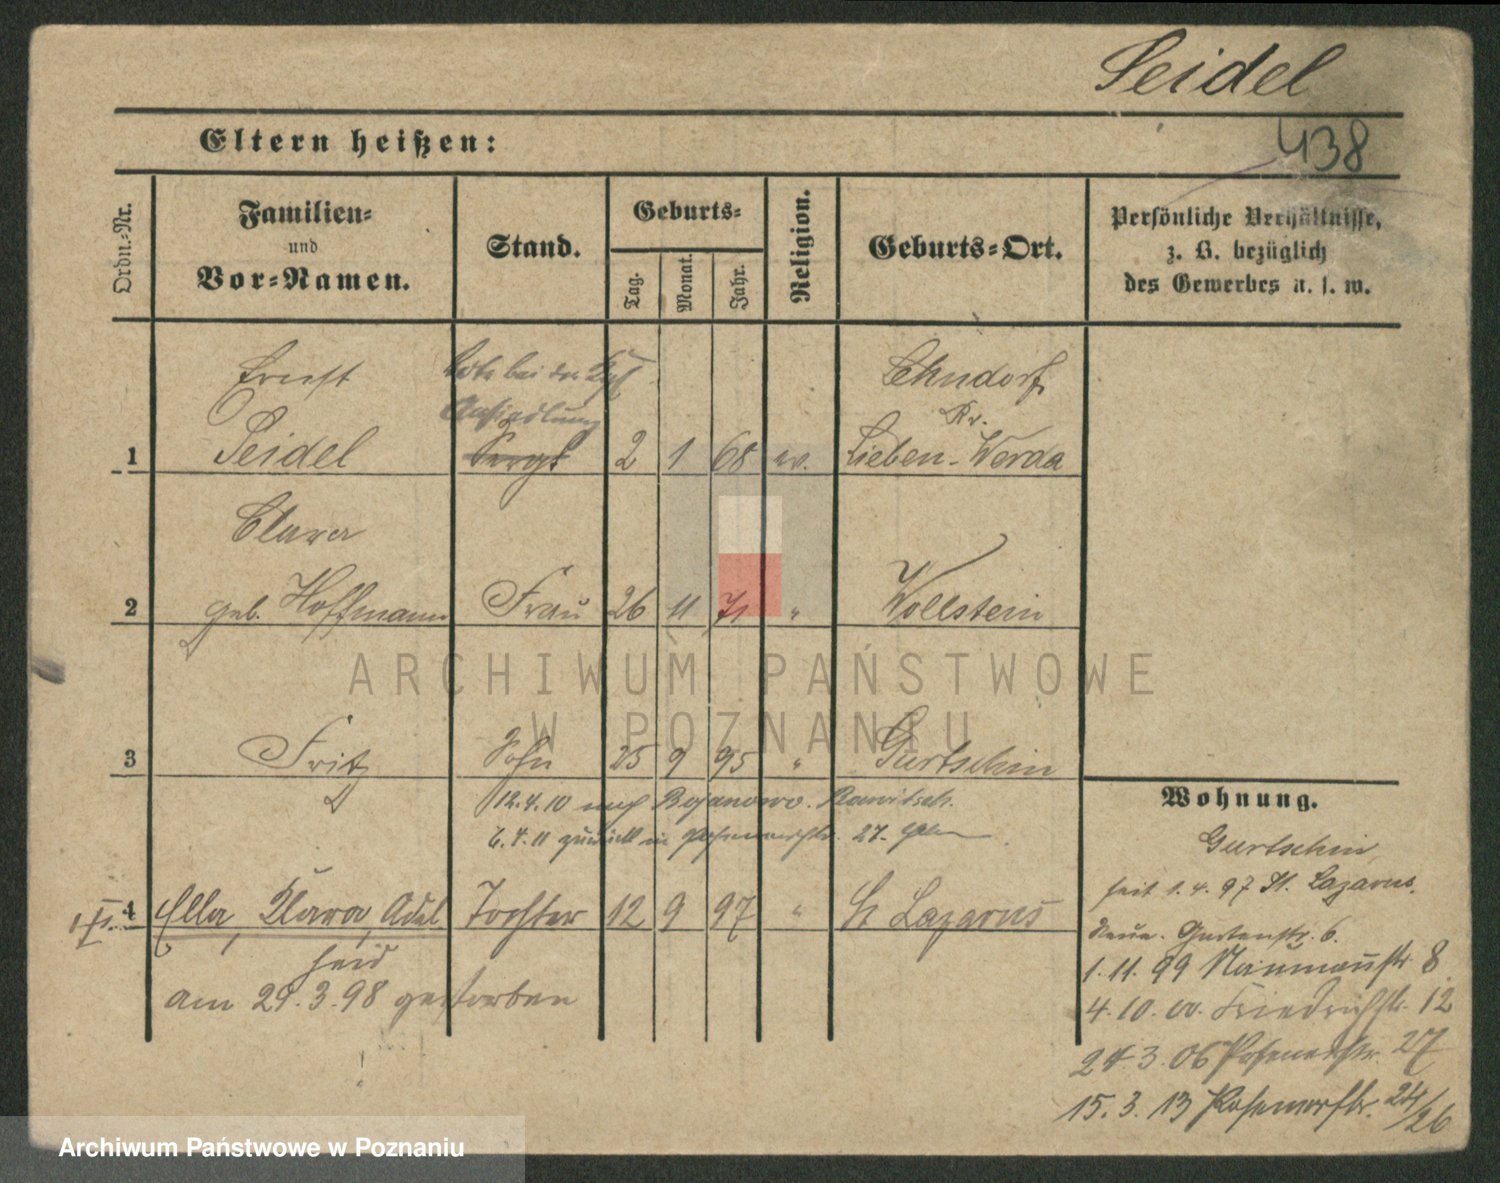 Seidel
438
Eltern heißen:
Ordn.-Nr.
Familien-
und
Vor-Namen.
Stand.
Geburts-
Tag.
Monat.
Jahr.
Religion.
Geburts-Ort.
Persönliche Verhältnisse,
z. B. bezüglich
des Gewerbes u. s. w.
Ernst
Bote bei der Kgl
Ansiedlung
Lehndorf
Kr.
1 Seidel Sergt 2 1 68 ev. Lieben-Werda
Clara
2 geb. Hoffmann Frau 26 11 71 " Wollstein
3 Fritz Sohn 25 9 95 " Gurtschin
12.4.10 nach Bojanowo. Rawitsch.
6.4.11 zurück in Posenerstr. 27.
4 Ella, Klara, Adel Tochter 12 9 97 " St Lazarus
heid
am 29.3.98 gestorben
Wohnung.
Gurtschin
seit 1.4.97 St. Lazarus.
Neue. Gartenstr. 6.
1.11.99 Naumannstr 8
4.10.00. Friedrichstr. 12
24.3.06 Posenerstr. 27
15.3.13 Posenerstr. 24/26
ARCHIWUM PAŃSTWOWE
W POZNANIU
Archiwum Państwowe w Poznaniu